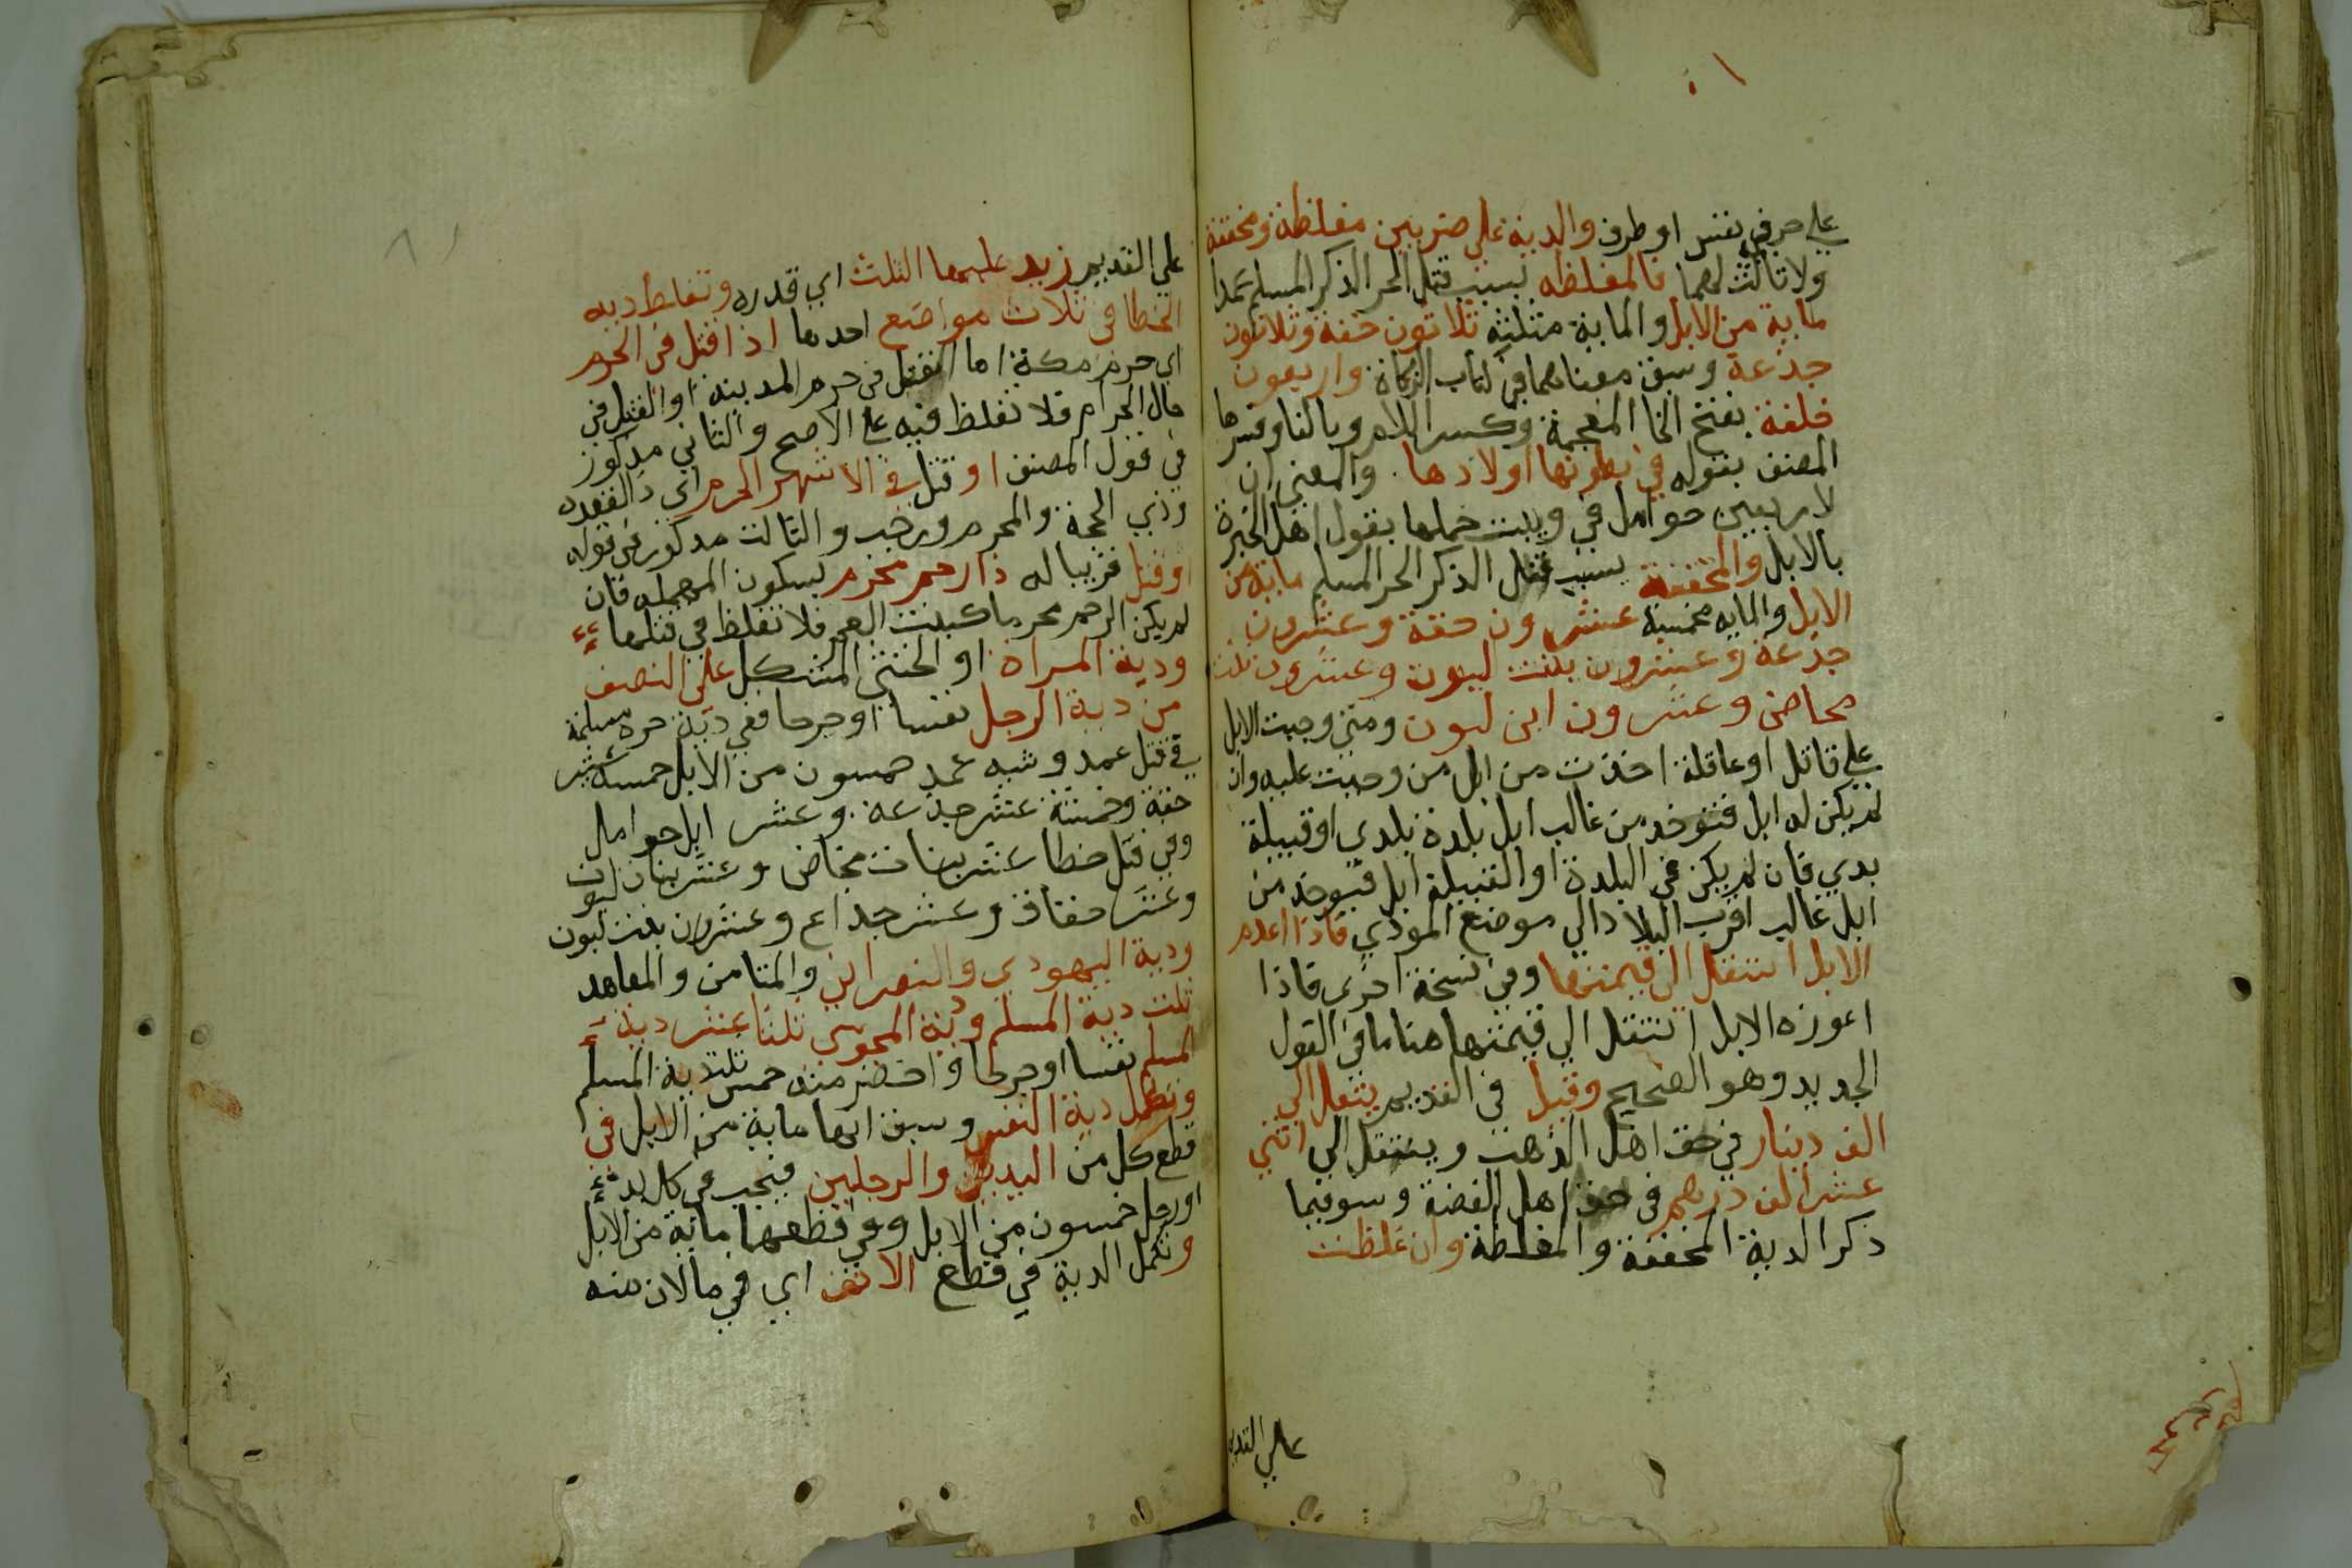 على حر في نفس او طرف والدية على ضربين مغلظة ومخففة
ولا ثالث لهما فالمغلظه بسبب قتل الحر الذكر المسلم عمدا
ماية من الابل والماية مثلثه ثلاثون حقة وثلاثون
جذعة وسبق معناهما في كتاب الزكاة واربعون
خلفة بفتح الخا المعجمة وكسر اللام وبالفا وفسرها
المصنف بقوله في بطونها اولادها والمعني ان
لاربعين حوامل في ويبت حملها بقول اهل الخبرة
بالابل والمخففة بسبب قتل الذكر الحر المسلم ماية من
الابل والمايه مخمسة عشرون حقة وعشرون
جذعة وعشرون بنت لبون وعشرون بنت
مخاض وعشرون ابن لبون ومتي وجبت الابل
على قاتل او عاقلة اخذت من ابل من وجبت عليه وان
لم يكن له ابل فتوخذ من غالب ابل بلدة بلدي او قبيلة
بدي فان لم يكن في البلدة او القبيلة ابل فتوخذ من
ابل غالب اقرب البلاد الي موضع المودي فاذا اعدم
الابل انتقل الى قيمتها وفي نسخة اخرى فاذا
اعوزه الابل انتقل الي قيمتها هنا ما في القول
الجديد وهو الصحيح وقيل في القديم ينتقل الي
الف دينار في حق اهل الذهب وينتقل الي اثني
عشر الف درهم في حق اهل الفضة وسو فيما
ذكر الدية المخففة والمغلظة وان غلظت
على القديم
١٨
على القديم زيد عليهما الثلث اي قدره وتغلظ ديه
الخطا في ثلاث مواضع احدها اذا قتل في الحرم
اي حرم مكة اما القتل في حرم المدينة او القتل في
حال الحرام فلا تغلظ فيه على الاصح والثاني مذكور
في قول المصنف او قتل في الاشهر الحرم اي ذالقعده
وذي الحجة والمحرم ورجب والثالث مذكور في قوله
او قتل قريبا له ذا رحم محرم بسكون المهمله فان
لم يكن الرحم محرما كبنت العم فلا تغلظ في قتلها
ودية المراة او الخنثي المشكل على النصف
من دية الرجل نفسا او جرحا ففي دية حره مسلمة
في قتل عمد وشبه عمد خمسون من الابل خمسة عشر
حقة وخمسة عشر جذعة وعشر ابل حوامل
وفي قتل خطا عشر بنات مخاض وعشر بنات لبون
وعشر حقاق وعشر جذاع وعشرون بنت لبون
ودية اليهودي والنصراني والمتامن والمعاهد
ثلث دية المسلم ودية المجوسي ثلثا عشر دية
المسلم نفسا او جرحا واخضر منه خمس ثلث دية المسلم
وتكمل دية النفس وسبق انها ماية من الابل في
قطع كل من اليدين والرجلين فيجب في كل يد
او رجل خمسون من الابل وفي قطعهما ماية من الابل
وتكمل الدية في قطع الانف اي في مالان منه